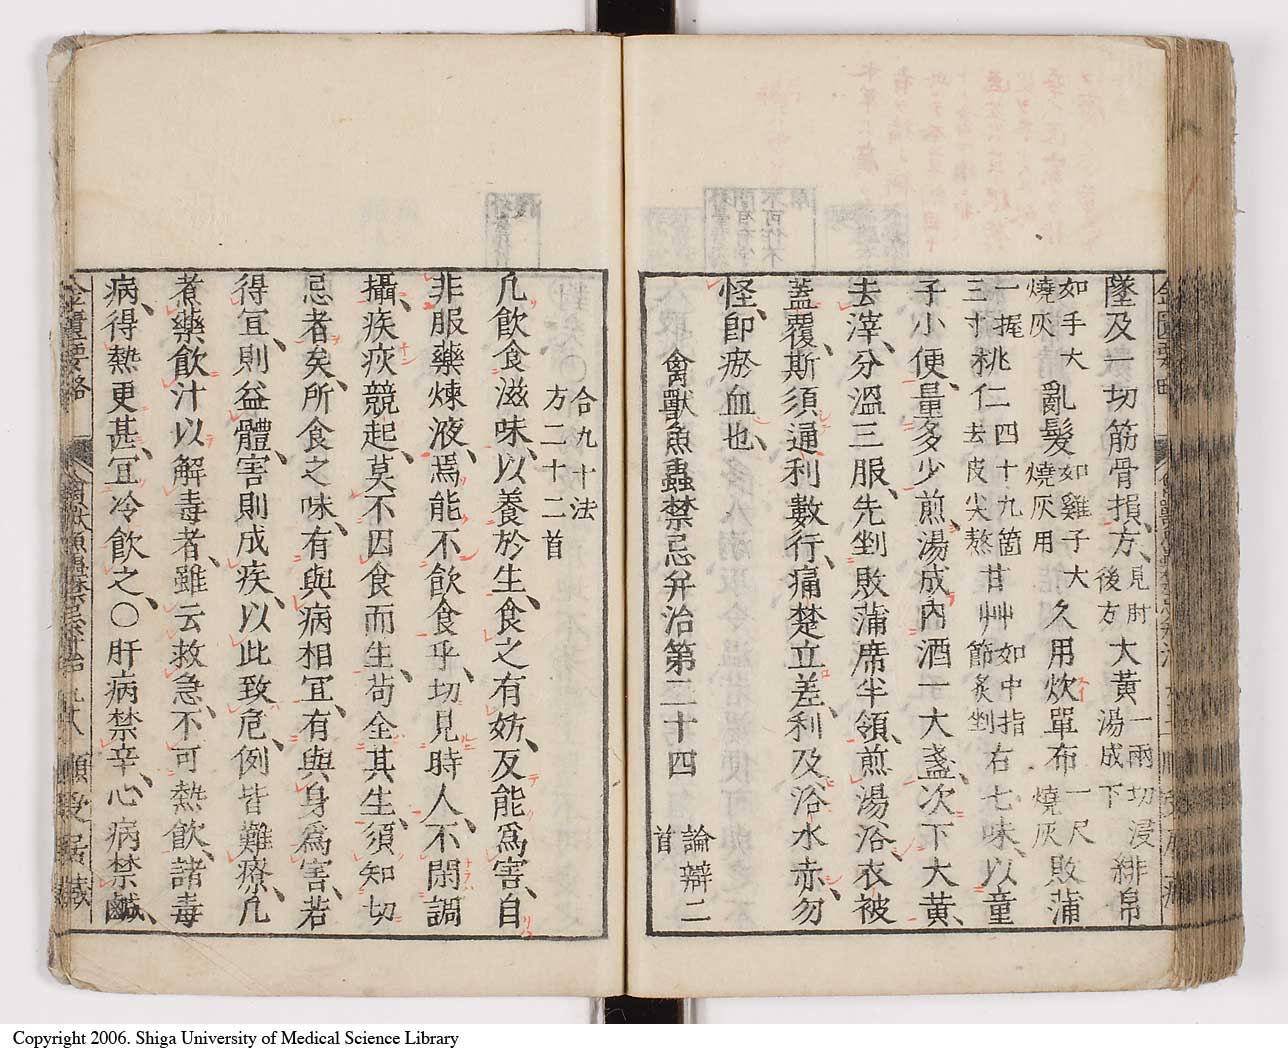 墜及一切筋骨損方、見肘後方 大黃一兩切浸湯成下 緋帛
如手大燒灰 亂髮如雞子大燒灰用 久用炊單布一尺燒灰 敗蒲
一握三寸 桃仁四十九箇去皮尖熬 甘艸如中指節炙剉 右七味、以童
子小便、量多少煎、湯成內酒一大盞、次下大黃、
去滓、分溫三服、先剉敗蒲席半領、煎湯浴、衣被
蓋覆、斯須通利數行、痛楚立差、利及浴水赤、勿
怪、卽瘀血也、
禽獸魚蟲禁忌幷治第二十四 論辯二首
合九十法
方二十二首
凡飲食滋味、以養於生、食之有妨、反能爲害、自
非服藥煉液、焉能不飲食乎、切見時人、不閑調
攝、疾疢競起、莫不因食而生、苟全其生、須知切
忌者矣、所食之味、有與病相冝、有與身爲害、若
得冝、則益體、害則成疾、以此致危、例皆難療、凡
煮藥飲汁以解毒者、雖云救急、不可熱飲、諸毒
病、得熱更甚、冝冷飲之、〇肝病禁辛、心病禁鹹、
金匱要略 禽獸魚蟲禁忌幷治 九十八
Copyright 2006. Shiga University of Medical Science Library